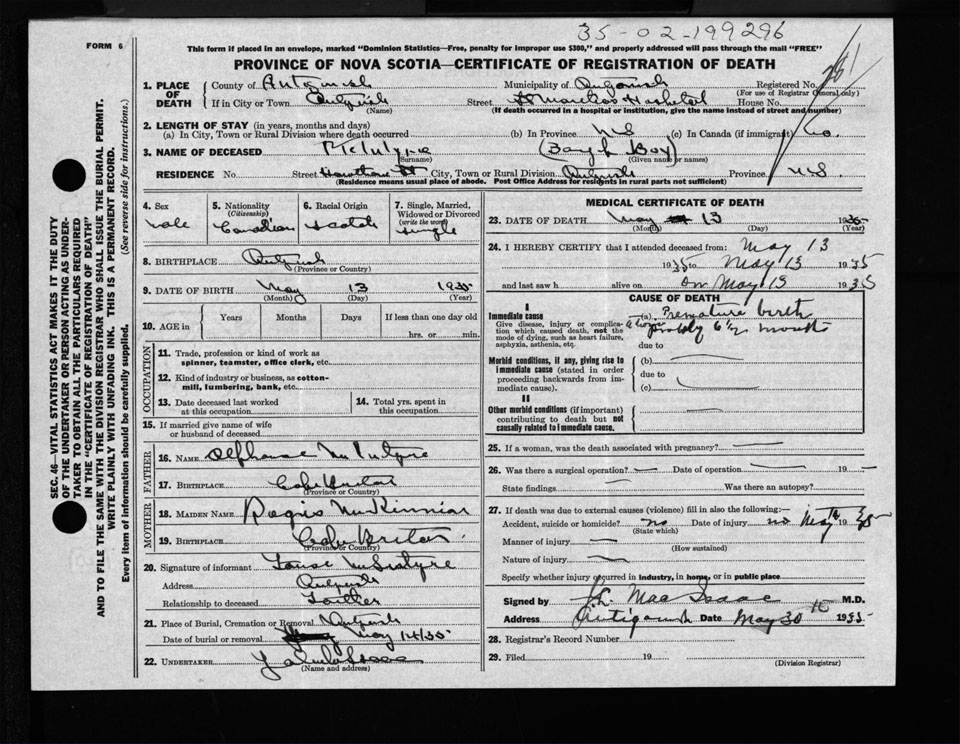 35-02-199296
FORM 6
This form if placed in an envelope, marked "Dominion Statistics—Free, penalty for improper use $300," and properly addressed will pass through the mail "FREE"
PROVINCE OF NOVA SCOTIA—CERTIFICATE OF REGISTRATION OF DEATH
SEC. 46—VITAL STATISTICS ACT MAKES IT THE DUTY
OF THE UNDERTAKER OR PERSON ACTING AS UNDER-
TAKER TO OBTAIN ALL THE PARTICULARS REQUIRED
IN THE "CERTIFICATE OF REGISTRATION OF DEATH"
AND TO FILE THE SAME WITH THE DIVISION REGISTRAR WHO SHALL ISSUE THE BURIAL PERMIT.
WRITE PLAINLY WITH UNFADING INK. THIS IS A PERMANENT RECORD.
Every item of information should be carefully supplied. (See reverse side for instructions.)
1. PLACE OF DEATH County of Municipality of Registered No.
(For use of Registrar General only)
If in City or Town Street House No.
(Name) (If death occurred in a hospital or institution, give the name instead of street and number)
2. LENGTH OF STAY (in years, months and days)
(a) In City, Town or Rural Division where death occurred (b) In Province (c) In Canada (if immigrant)
3. NAME OF DECEASED McIntyre (Baby Boy)
(Surname) (Given name or names)
RESIDENCE No. Street Hawthorne St City, Town or Rural Division Province NS
(Residence means usual place of abode. Post Office Address for residents in rural parts not sufficient)
4. Sex Male
5. Nationality (Citizenship) Canadian
6. Racial Origin Scotch
7. Single, Married, Widowed or Divorced (write the word) Single
8. BIRTHPLACE
(Province or Country)
9. DATE OF BIRTH May 13 1935
(Month) (Day) (Year)
10. AGE in Years Months Days If less than one day old
hrs. or min.
OCCUPATION
11. Trade, profession or kind of work as spinner, teamster, office clerk, etc.
12. Kind of industry or business, as cotton-mill, lumbering, bank, etc.
13. Date deceased last worked at this occupation
14. Total yrs. spent in this occupation
15. If married give name of wife or husband of deceased
FATHER
16. NAME Alphonse McIntyre
17. BIRTHPLACE Cape Breton
(Province or Country)
MOTHER
18. MAIDEN NAME McKinnon
19. BIRTHPLACE Cape Breton
(Province or Country)
20. Signature of informant McIntyre
Address
Relationship to deceased Father
21. Place of Burial, Cremation or Removal
Date of burial or removal May 14/35
22. UNDERTAKER
(Name and address)
MEDICAL CERTIFICATE OF DEATH
23. DATE OF DEATH May 13 1935
(Month) (Day) (Year)
24. I HEREBY CERTIFY that I attended deceased from: May 13
1935 to May 13 1935
and last saw h alive on May 13 1935
CAUSE OF DEATH
I
Immediate cause
Give disease, injury or complication which caused death, not the mode of dying, such as heart failure, asphyxia, asthenia, etc.
(a) Premature birth
6½ months
due to
Morbid conditions, if any, giving rise to immediate cause (stated in order proceeding backwards from immediate cause).
(b)
due to
(c)
II
Other morbid conditions (if important) contributing to death but not causally related to immediate cause.
25. If a woman, was the death associated with pregnancy?
26. Was there a surgical operation? Date of operation 19
State findings Was there an autopsy?
27. If death was due to external causes (violence) fill in also the following:—
Accident, suicide or homicide? no Date of injury no 19
(State which)
Manner of injury
(How sustained)
Nature of injury
Specify whether injury occurred in industry, in home, or in public place
Signed by MacIsaac M.D.
Address Antigonish Date May 30 1935
28. Registrar's Record Number
29. Filed 19
(Division Registrar)